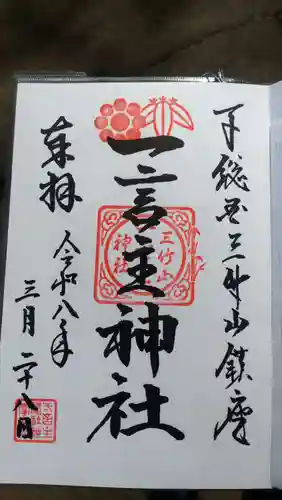 下総国三竹山鎮座
一言主神社
三竹山
神社
奉拝
令和八年
三月二十八日